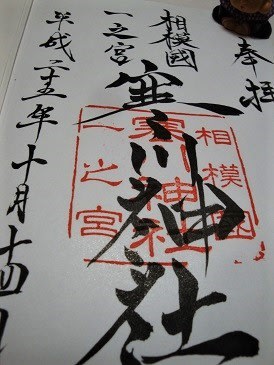 奉拝
相模國
一之宮
寒川神社
平成二十五年十月十四日
相模國
寒川神社
一之宮